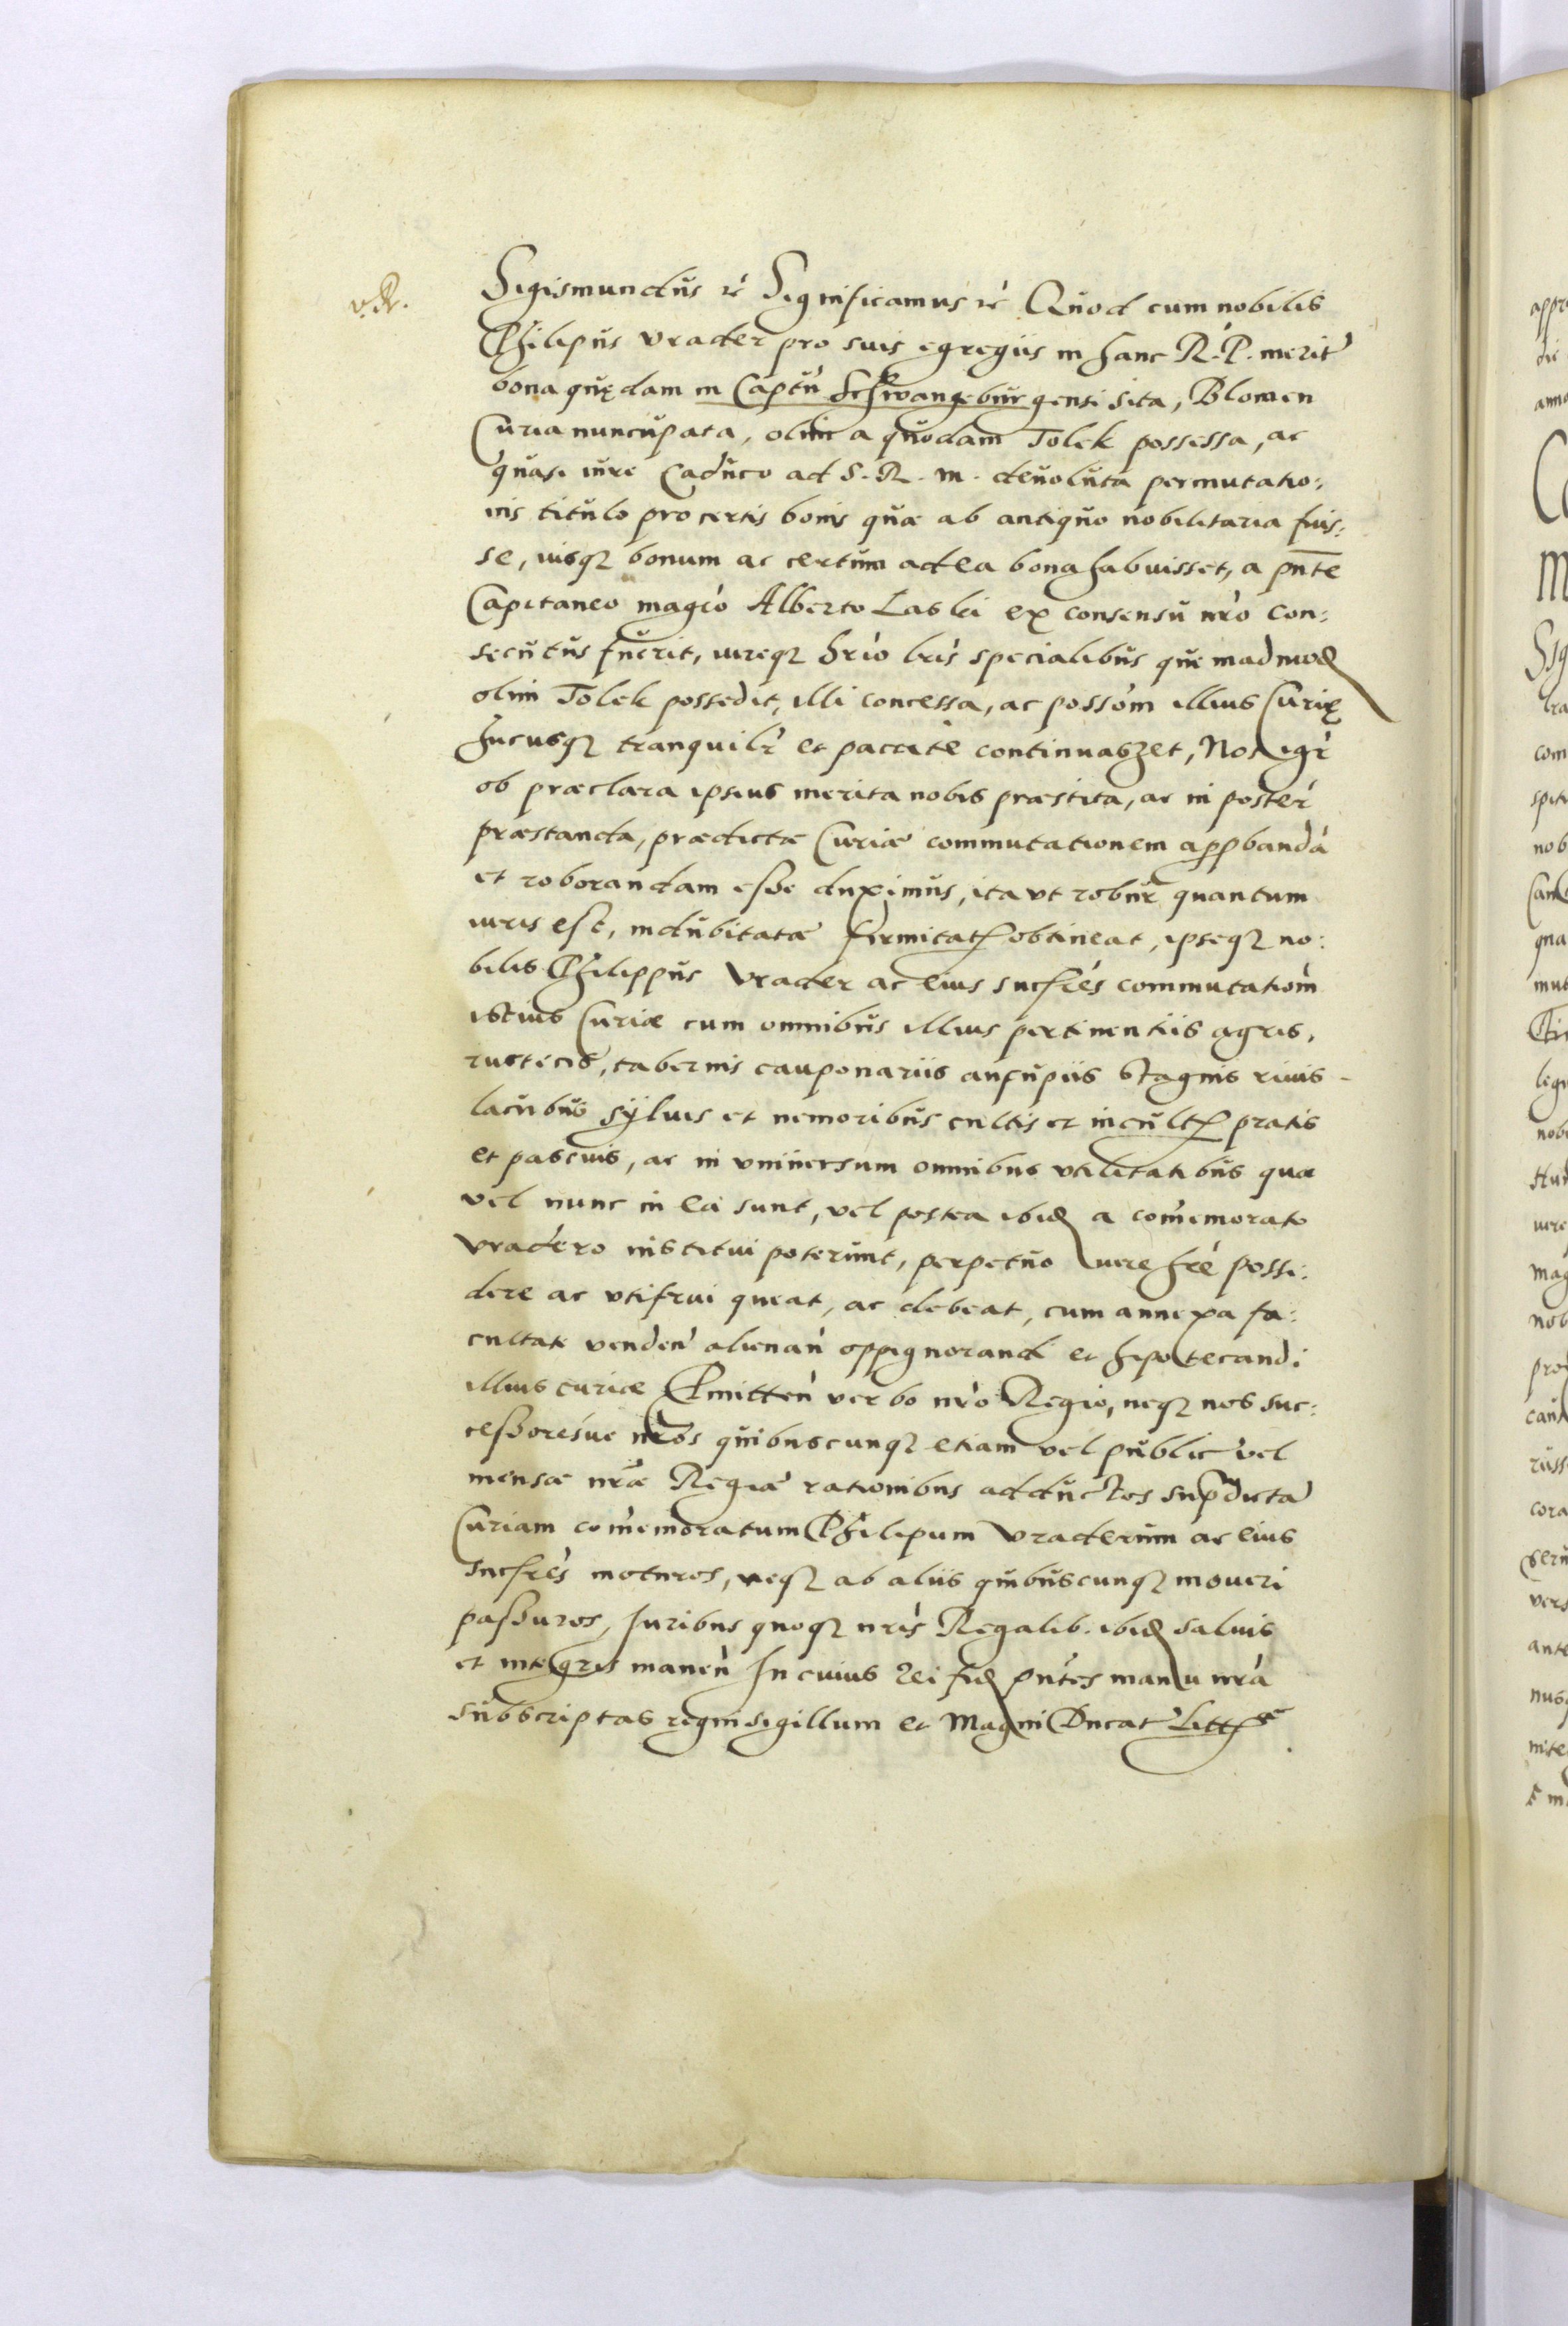 v. R.
Sigismundus etc Significamus etc Quod cum nobilis
Philipus Vrader pro suis egregiis in hanc R. P. merit
bona quędam in Captū Schwangeburgensi sita, Blomen
Curia nuncupata, olim a quodam Tolek possessa, ac
quasi iure Caduco ad S. R. M. deuoluta permutatio:
nis titulo pro certis bonis quæ ab antiquo nobilitaria fuis:
se, iusq bonum ac certum ad ea bona habuisset, a pnte
Capitaneo magco Alberto Laski ex consensu nro con:
secutus fuerit, iureq hrio lris specialibus quemadmod
olim Tolek possedit, illi concessa, ac possom illius Curię
hucusq tranquilr et paccate continuasset, Nos igr
ob præclara ipsius merita nobis præstita, ac in poster
præstanda, prædictæ Curiæ commutationem approbandā
et roborandam esse duximus, ita vt robur quantum
iuris est, indubitatæ firmitatis obtineat, ipseq no:
bilis Philippus Vrader ac eius sucsres commutatiom
istius Curiæ cum omnibus illius pertinentiis agris,
rusticis, tabernis cauponariis aucupiis stagnis riuis
lacubus syluis et nemoribus cultis et incultis pratis
et pascuis, ac in vniuersum omnibus vtilitatibus quæ
vel nunc in ea sunt, vel postea ibid a comemorato
Vradero institui poterunt, perpetuo iure hre possi:
dere ac vtifrui queat, ac debeat, cum annexa fa:
cultate venden alienan oppignorandi et hipotecandi
illius curiæ Pmitten verbo nro Regio, neq nos suc:
cessoresue nros quibuscunq etiam vel public vel
mensæ nræ Regiæ rationibus adductos supdicta
Curiam comemoratum Philipum Vraderum ac eius
sucsres moturos, neq ab aliis quibuscunq moueri
passuros, Iuribus quoq nris Regalib. ibid saluis
et integris manen In cuius rei fid pntes manu nra
subscriptas regni sigillum et Magni Ducat Litt etc